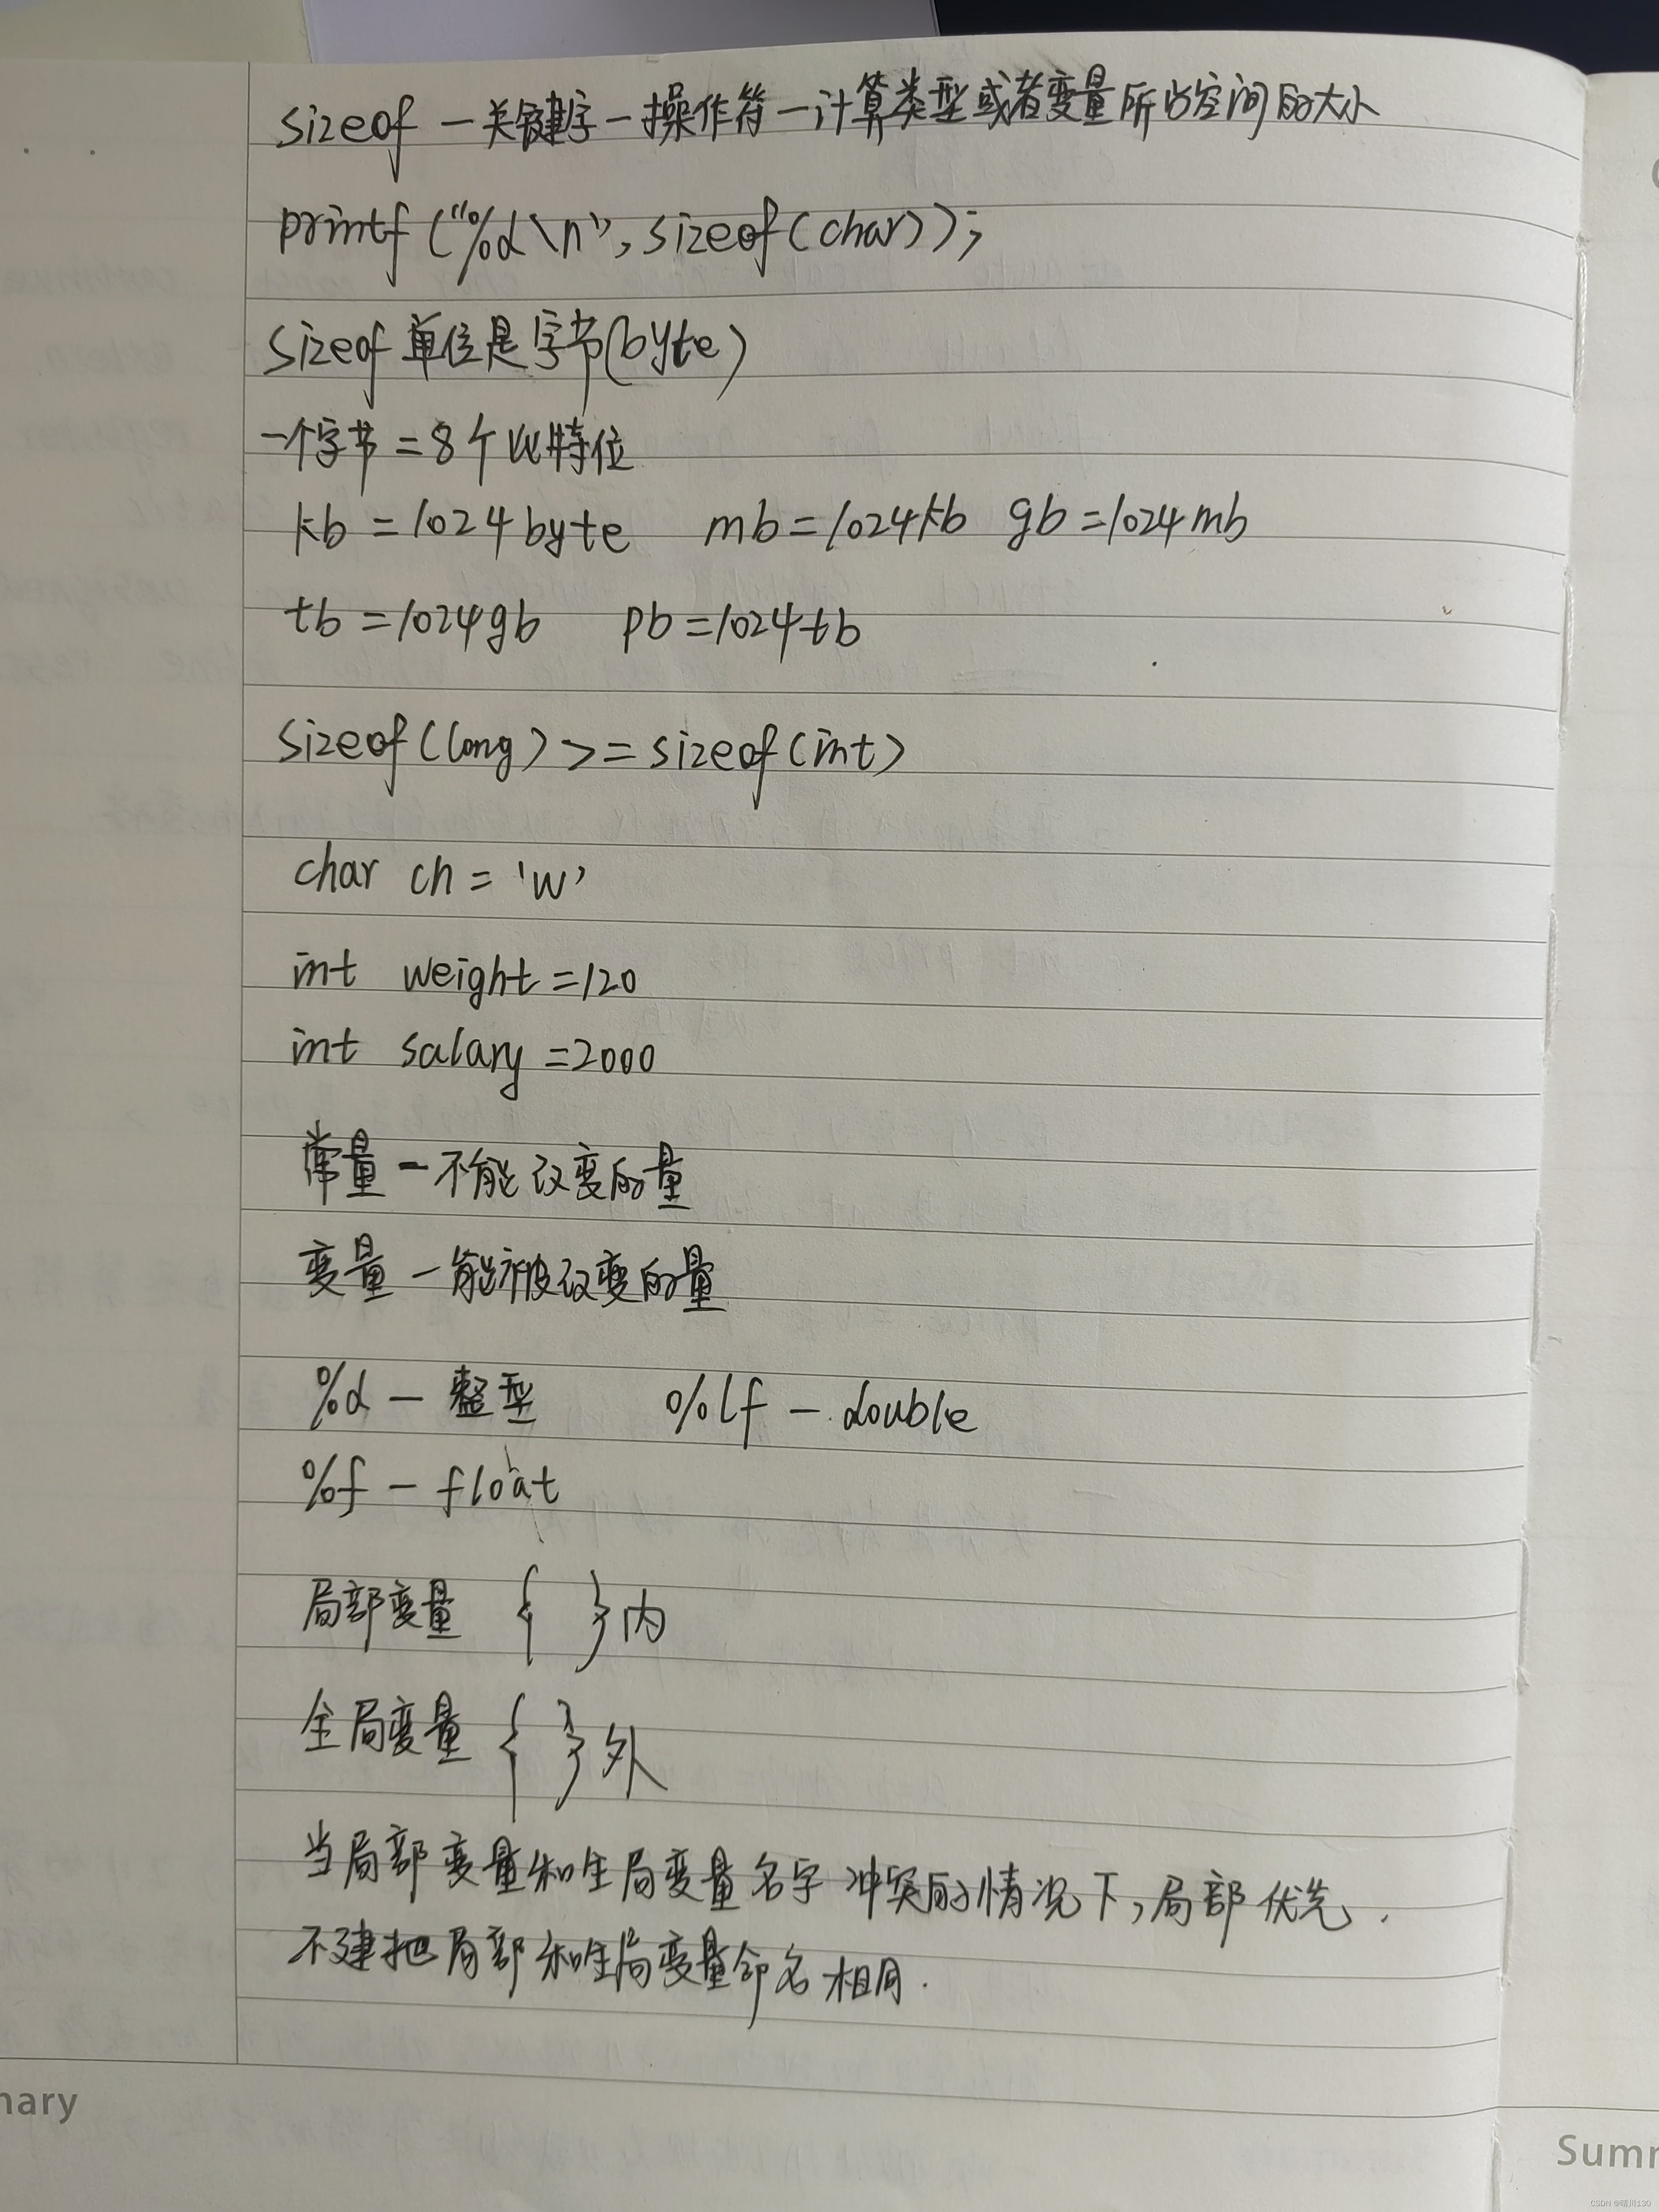 sizeof 一关键字一操作符一计算类型或者变量所占空间的大小
printf ("%d\n", sizeof(char));
sizeof 单位是字节(byte)
一个字节 = 8个比特位
kb = 1024 byte mb = 1024kb gb = 1024mb
tb = 1024gb pb = 1024tb
sizeof(long) >= sizeof(int)
char ch = 'w'
int weight = 120
int salary = 2000
常量 - 不能改变的量
变量 - 能被改变的量
%d - 整型 %lf - double
%f - float
局部变量 { } 内
全局变量 { } 外
当局部变量和全局变量名字冲突的情况下,局部优先.
不建把局部和全局变量命名相同.
nary
Summ
CSDN @晴川130